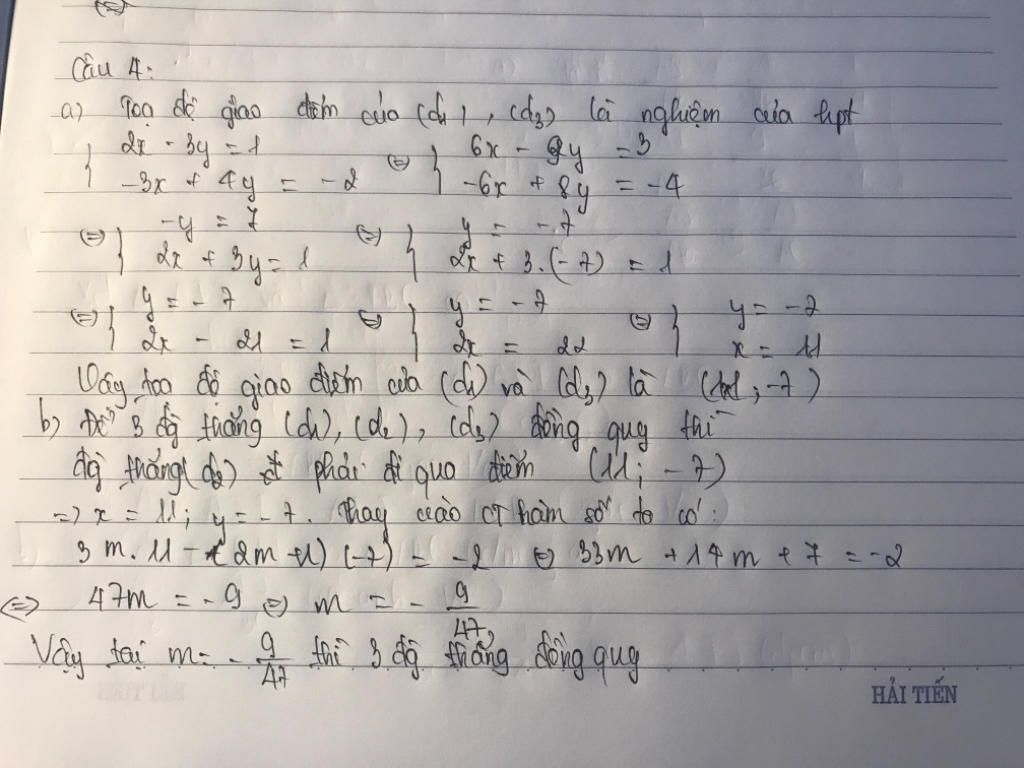 (=)
Câu 4:
a) Toạ độ giao điểm của (d1), (d3) là nghiệm của hpt
{ 2x - 3y = 1 (=) { 6x - 9y = 3
-3x + 4y = -2 -6x + 8y = -4
(=) { -y = 7 (=) { y = -7
2x + 3y = 1 2x + 3.(-7) = 1
(=) { y = -7 (=) { y = -7 (=) { y = -7
2x - 21 = 1 2x = 22 x = 11
Vậy toạ độ giao điểm của (d1) và (d3) là (11; -7)
b) Để 3 đg thẳng (d1), (d2), (d3) đồng quy thì
đg thẳng (d2) phải đi qua điểm (11; -7)
=> x = 11; y = -7. Thay vào CT hàm số ta có:
3m.11 - (2m+1)(-7) = -2 (=) 33m + 14m + 7 = -2
(=) 47m = -9 (=) m = -9/47
Vậy tại m = -9/47 thì 3 đg thẳng đồng quy
HẢI TIẾN